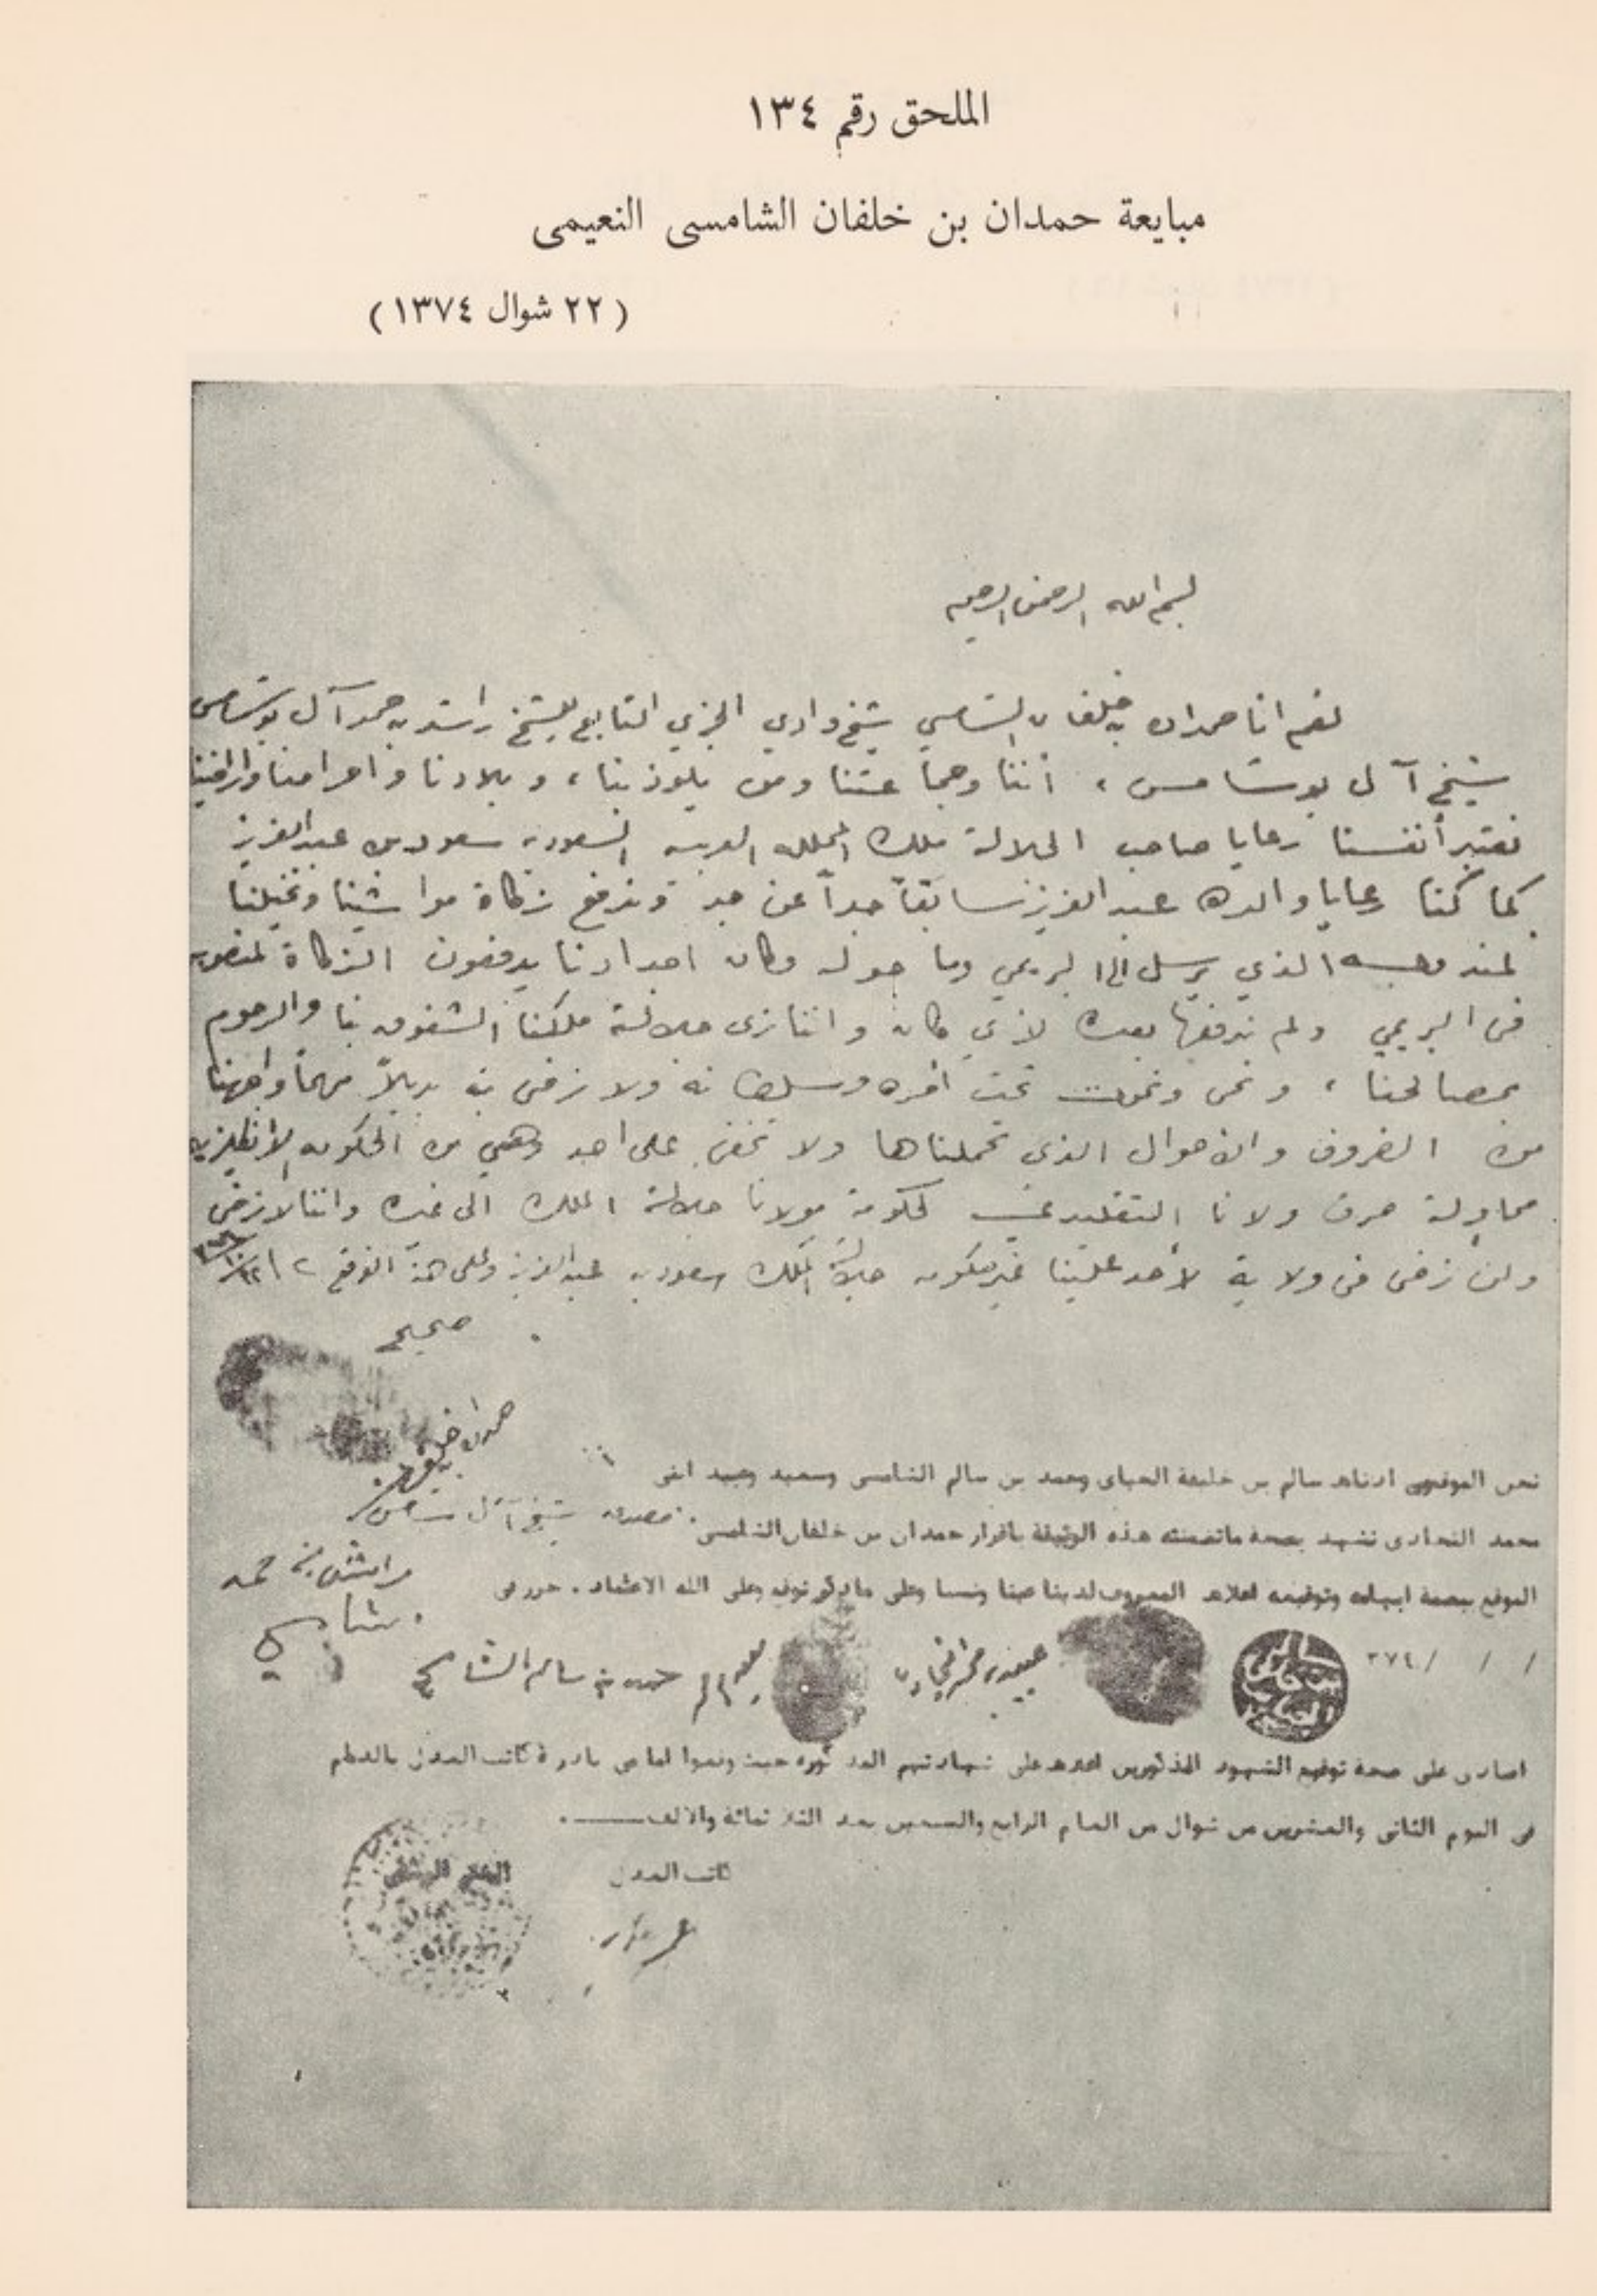 الملحق رقم ١٣٤
مبايعة حمدان بن خلفان الشامسى النعيمى
( ٢٢ شوال ١٣٧٤ )
بسم الله الرحمن الرحيم
نعم انا حمدان بن خلفان الشامسي شيخ وادي الجزي التابع للشيخ راشد بن حمد آل بوشامس
شيخ آل بوشامس ، أننا وجماعتنا ومن يلوذ بنا ، وبلادنا و احرامنا وأراضينا
نعتبر أنفسنا رعايا صاحب الجلالة ملك المملكه العربيه السعوديه سعود بن عبد العزيز
كما كنا رعايا والده عبد العزيز سابقاً جداً عن جد وندفع زكاة مواشينا ونخيلنا
لمندوبه الذي يرسل الى البريمي وما حوله وكان اجدادنا يدفعون الزكاة لمنصوبه
فى البريمي ولم ندفعها بعده لأي كان و اننا نرى جلالة ملكنا الشفوق بنا والرحوم
بمصالحنا ، ونحى ونموت تحت أمره وسلطانه ولا نرضى به بديلاً مهما واجهنا
من الضروف والاحوال الذى تحملناها ولا تخفى على احد وهي من الحكومه الانقليزيه
محاولة صرف ولانا التقليدي لحكومة مولانا جلالة الملك الى غيره واننا لا نرضى
ولن نرضى فى ولاية لأحد علينا غير حكومه جلالة الملك سعود بن عبد العزيز وعلى هذا التوقيع
صحيح
حمدان خلفان
نحن الموقعين ادناه سالم بن خليفة الحباى وحمد بن سالم الشامسى وسعيد وعبيد ابنى
مصدق شيخ آل شامس
محمد النجادى نشهد بصحة ماتضمنته هذه الوثيقة باقرار حمدان بن خلفان الشامسى
راشد بن حمد
الموقع ببصمة ابهامه وتوقيعه اعلاه المعروف لدينا عينا ونسبا وعلى ماذكر نوقع وعلى الله الاعتماد . حرر فى
الشامسي
/ / / ٣٧٤
حمد بن سالم الشامسي
اصادق على صحة توقيع الشهود المذكورين اعلاه على شهادتهم المذكوره حيث وقعوا امامى بادرة كاتب العدل بالدمام
فى اليوم الثانى والعشرين من شوال من العام الرابع والسبعين بعد الثلاثمائة والالف .
كاتب العدل